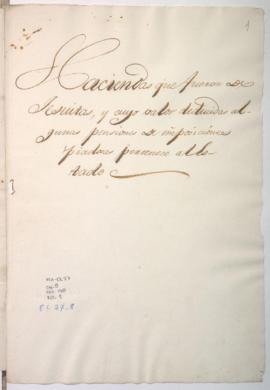 1
Haciendas que fueron de
Jesuitas, y cuyo valor deducidas al-
gunas pensiones de imposiciones
piadosas pertenece al Es-
tado
PL 27_8